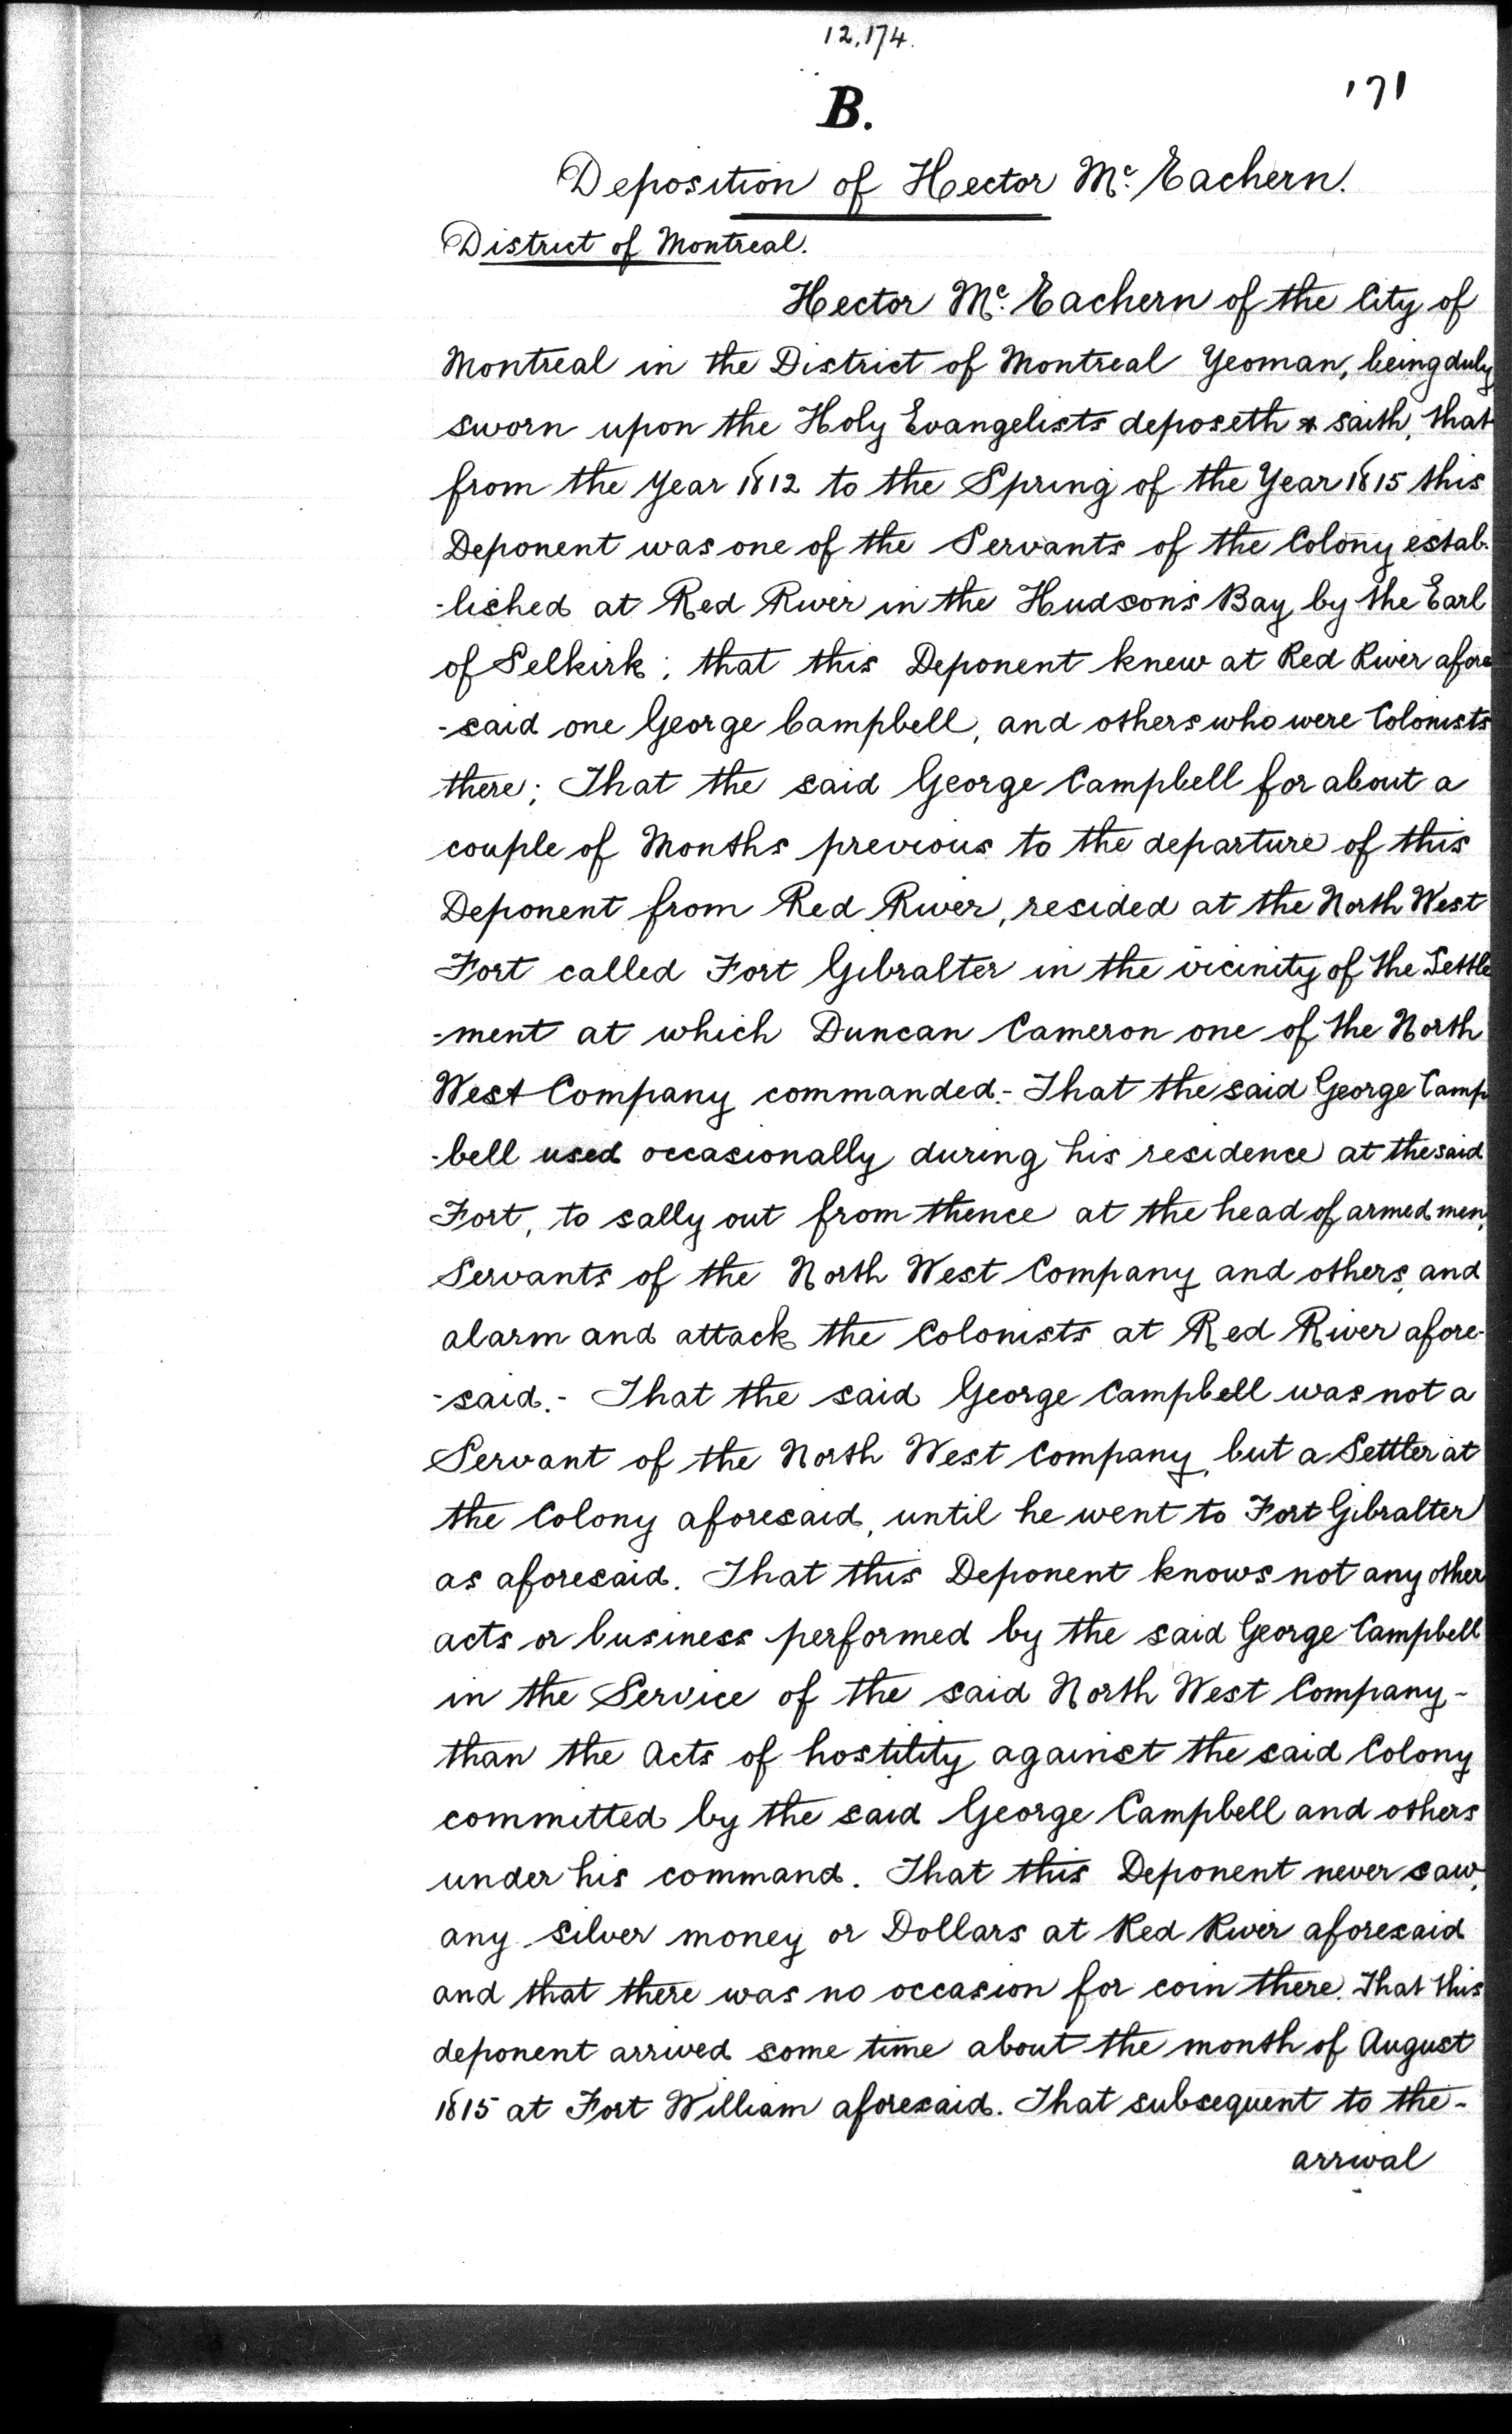 12,174.
171
B.
Deposition of Hector Mc. Eachern.
District of Montreal.
Hector Mc. Eachern of the City of
Montreal in the District of Montreal Yeoman, being duly
sworn upon the Holy Evangelists deposeth & saith, that
from the Year 1812 to the Spring of the Year 1815 this
Deponent was one of the Servants of the Colony estab-
-lished at Red River in the Hudson's Bay by the Earl
of Selkirk; that this Deponent knew at Red River afore
-said one George Campbell, and others who were Colonists
there; That the said George Campbell for about a
couple of Months previous to the departure of this
Deponent from Red River, resided at the North West
Fort called Fort Gibralter in the vicinity of the Settle
-ment at which Duncan Cameron one of the North
West Company commanded.- That the said George Camp
-bell used occasionally during his residence at the said
Fort, to sally out from thence at the head of armed men,
Servants of the North West Company and others, and
alarm and attack the Colonists at Red River afore-
-said.- That the said George Campbell was not a
Servant of the North West Company, but a Settler at
the Colony aforesaid, until he went to Fort Gibralter
as aforesaid. That this Deponent knows not any other
acts or business performed by the said George Campbell
in the Service of the said North West Company-
than the Acts of hostility against the said Colony
committed by the said George Campbell and others
under his command. That this Deponent never saw,
any silver money or Dollars at Red River aforesaid
and that there was no occasion for coin there. That this
deponent arrived some time about the month of August
1815 at Fort William aforesaid. That subsequent to the-
arrival